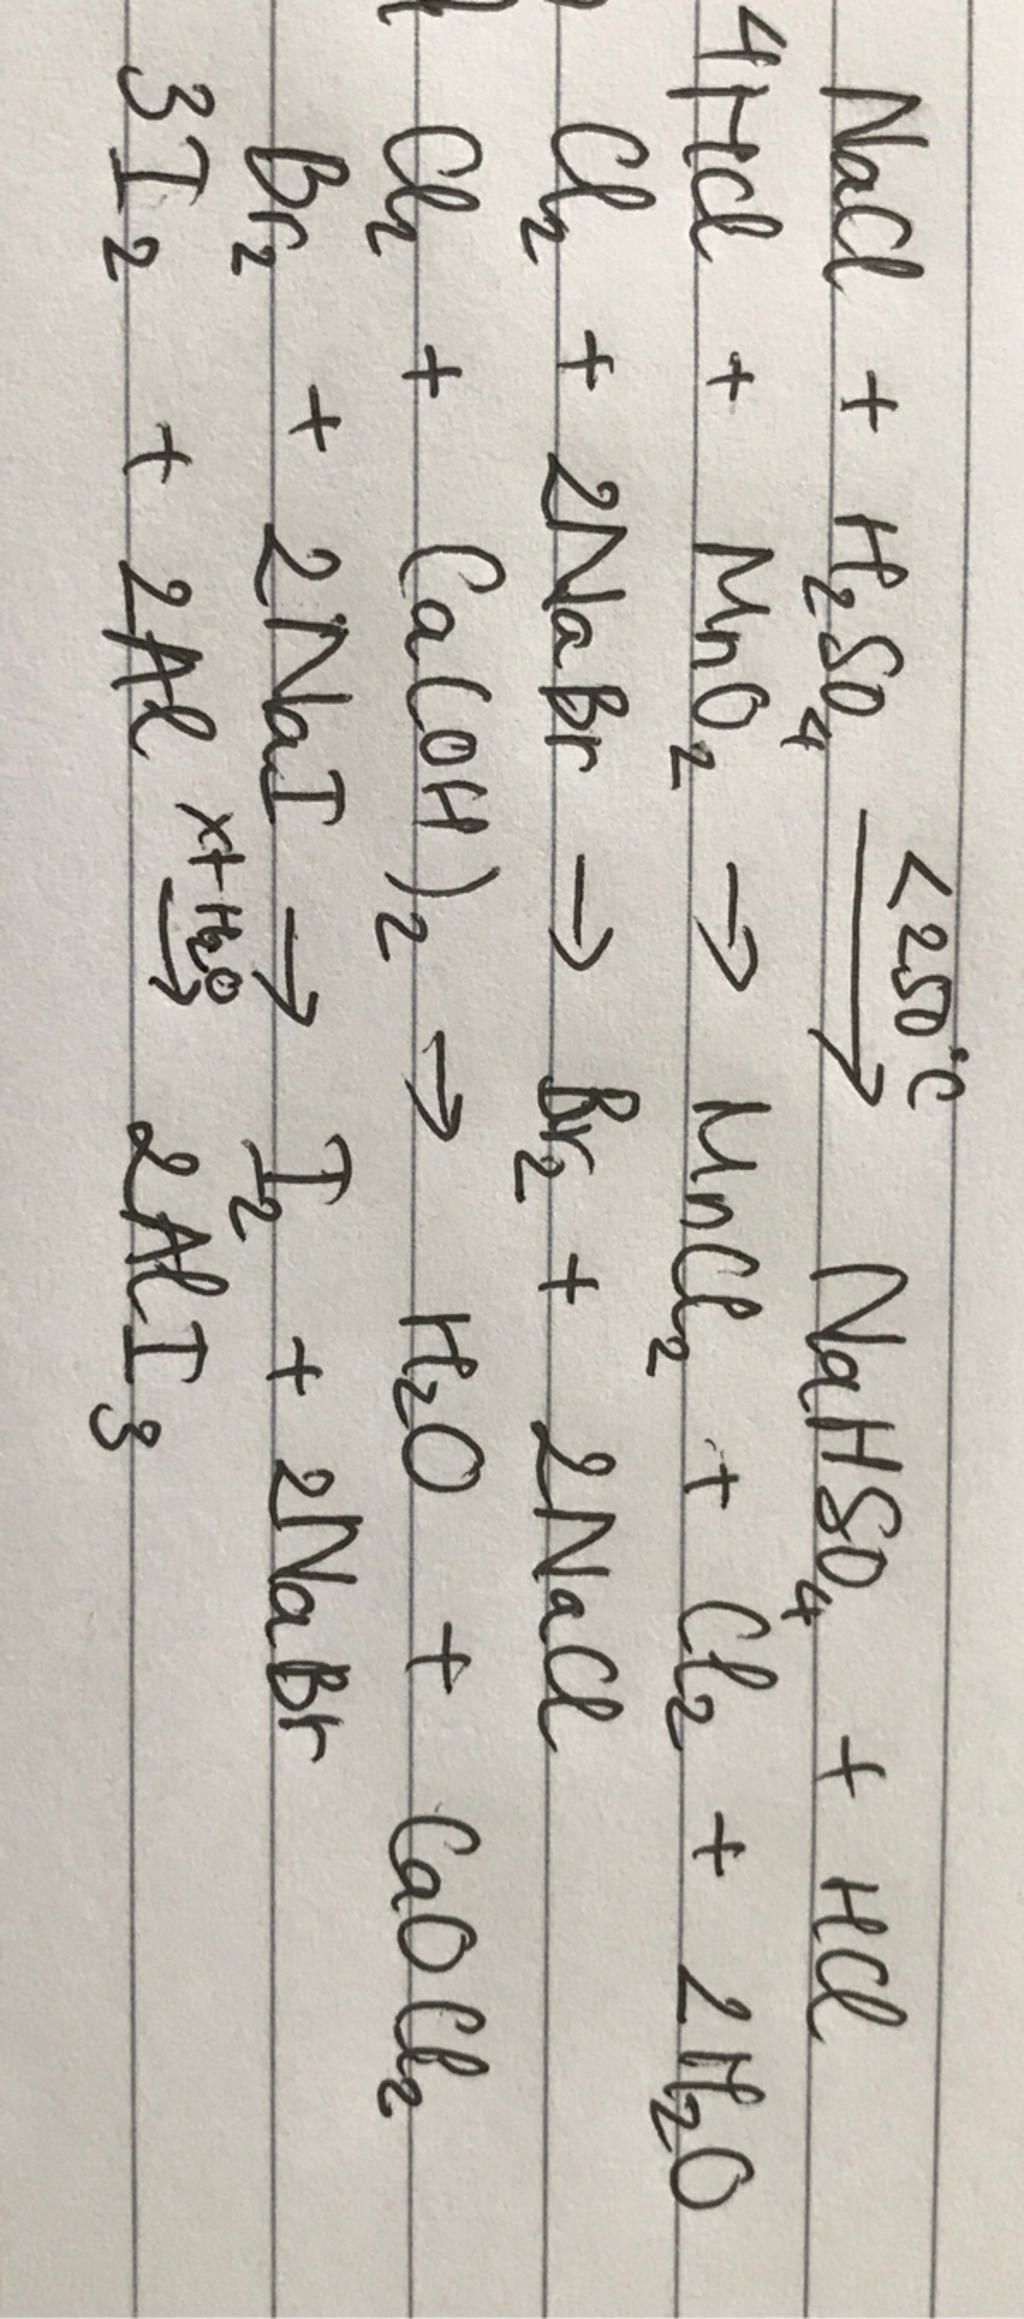 NaCl + H₂SO₄ —<250°C→ NaHSO₄ + HCl
4HCl + MnO₂ → MnCl₂ + Cl₂ + 2H₂O
Cl₂ + 2NaBr → Br₂ + 2NaCl
Cl₂ + Ca(OH)₂ → H₂O + CaOCl₂
Br₂ + 2NaI → I₂ + 2NaBr
3I₂ + 2Al —xt H₂O→ 2AlI₃